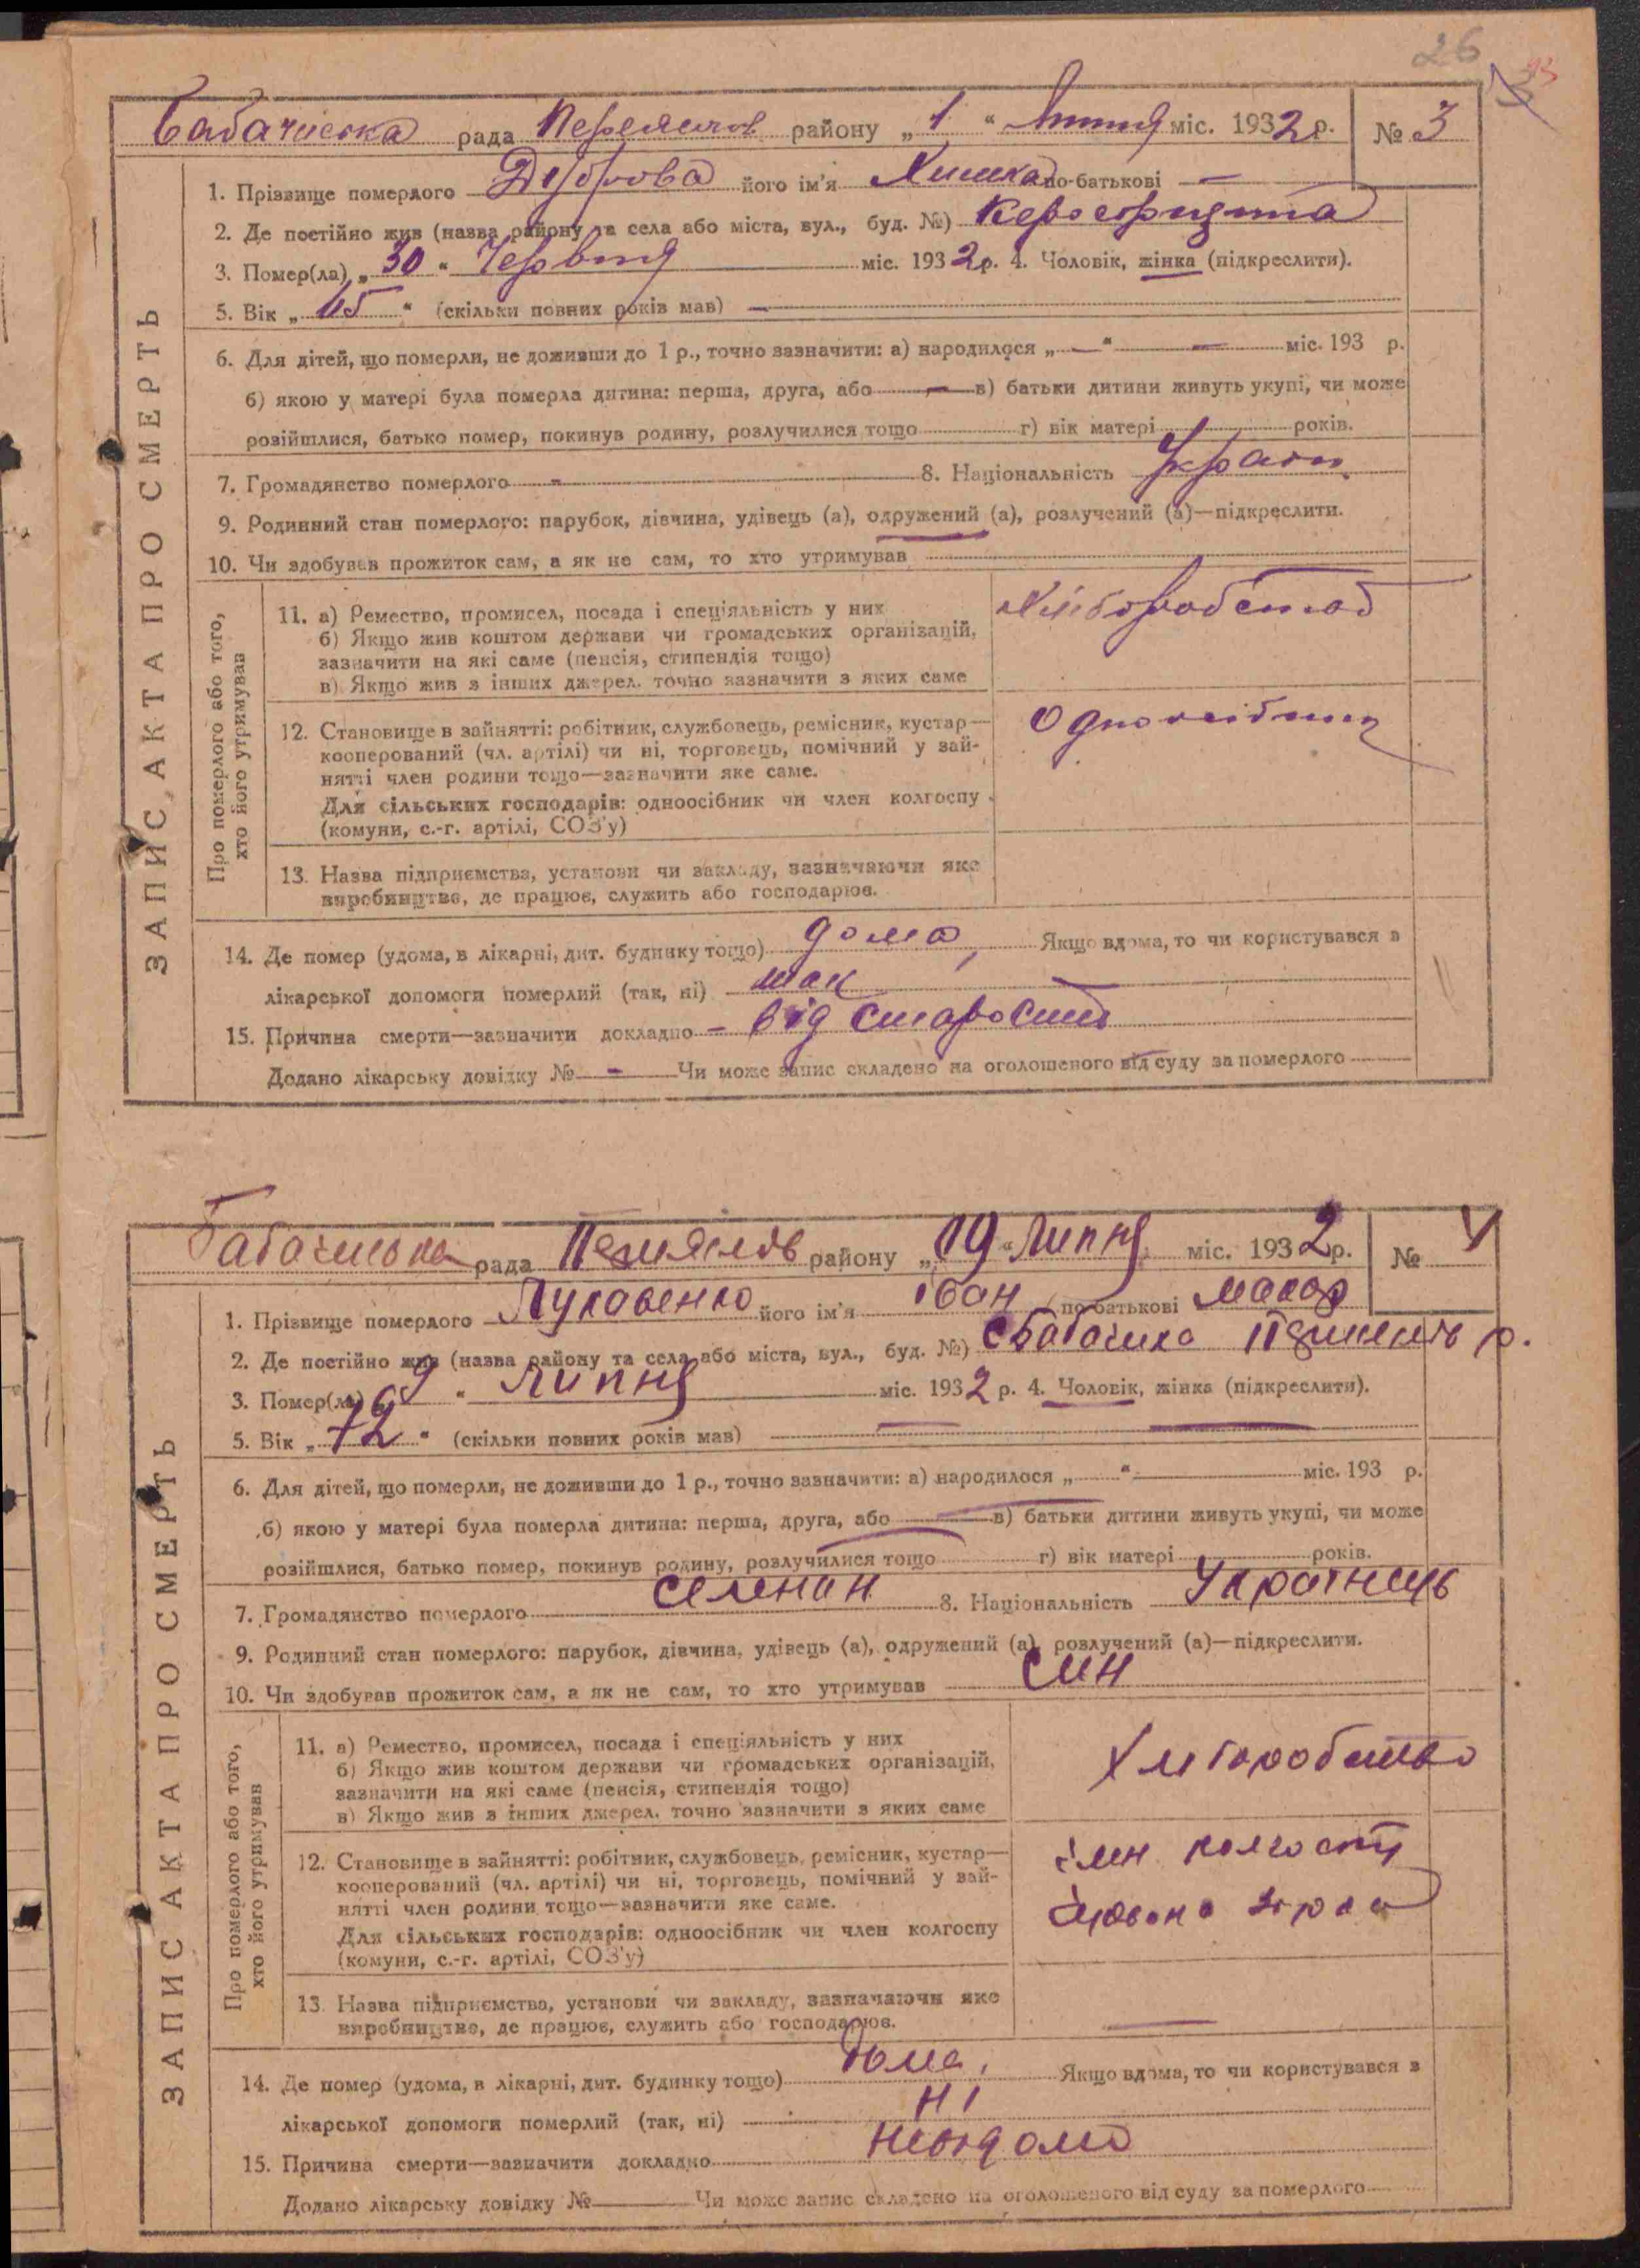 26
Бабачиська рада Переяслов району „1“ Липня міс. 1932 р. № 3
ЗАПИС АКТА ПРО СМЕРТЬ
1. Прізвище померлого Діброва його ім'я по-батькові —
2. Де постійно жив (назва району та села або міста, вул., буд. №)
3. Помер(ла) „30“ Червня міс. 1932 р. 4. Чоловік, жінка (підкреслити).
5. Вік „ “ (скільки повних років мав) —
6. Для дітей, що померли, не доживши до 1 р., точно зазначити: а) народилося „—“ — міс. 193 р.
б) якою у матері була померла дитина: перша, друга, або — в) батьки дитини живуть укупі, чи може
розійшлися, батько помер, покинув родину, розлучилися тощо г) вік матері років.
7. Громадянство померлого - 8. Національність Україн
9. Родинний стан померлого: парубок, дівчина, удівець (а), одружений (а), розлучений (а)—підкреслити.
10. Чи здобував прожиток сам, а як не сам, то хто утримував
Про померлого або того,
хто його утримував
11. а) Ремество, промисел, посада і спеціяльність у них
б) Якщо жив коштом держави чи громадських організацій,
зазначити на які саме (пенсія, стипендія тощо)
в) Якщо жив з інших джерел, точно зазначити з яких саме
12. Становище в зайнятті: робітник, службовець, ремісник, кустар—
кооперований (чл. артілі) чи ні, торговець, помічний у зай-
нятті член родини тощо—зазначити яке саме.
Для сільських господарів: одноосібник чи член колгоспу
(комуни, с.-г. артілі, СОЗ'у)
Одноосібниц
13. Назва підприємства, установи чи закладу, зазначаючи яке
виробництво, де працює, служить або господарює.
14. Де помер (удома, в лікарні, дит. будинку тощо) дома, Якщо вдома, то чи користувався з
лікарської допомоги померлий (так, ні) так
15. Причина смерти—зазначити докладно - від старости
Додано лікарську довідку № - Чи може запис складено на оголошеного від суду за померлого
Бабачиська рада району „19“ Липня міс. 1932 р. № 4
ЗАПИС АКТА ПРО СМЕРТЬ
1. Прізвище померлого Луковенко його ім'я Іван по-батькові Макар
2. Де постійно жив (назва району та села або міста, вул., буд. №) с Бабачиха р.
3. Помер(ла) „9“ Липня міс. 1932 р. 4. Чоловік, жінка (підкреслити).
5. Вік „72“ (скільки повних років мав) —
6. Для дітей, що померли, не доживши до 1 р., точно зазначити: а) народилося „ “ міс. 193 р.
б) якою у матері була померла дитина: перша, друга, або в) батьки дитини живуть укупі, чи може
розійшлися, батько помер, покинув родину, розлучилися тощо г) вік матері років.
7. Громадянство померлого селенин 8. Національність Українець
9. Родинний стан померлого: парубок, дівчина, удівець (а), одружений (а), розлучений (а)—підкреслити.
10. Чи здобував прожиток сам, а як не сам, то хто утримував син
Про померлого або того,
хто його утримував
11. а) Ремество, промисел, посада і спеціяльність у них
б) Якщо жив коштом держави чи громадських організацій,
зазначити на які саме (пенсія, стипендія тощо)
в) Якщо жив з інших джерел, точно зазначити з яких саме
Хліборобство
12. Становище в зайнятті: робітник, службовець, ремісник, кустар—
кооперований (чл. артілі) чи ні, торговець, помічний у зай-
нятті член родини тощо—зазначити яке саме.
Для сільських господарів: одноосібник чи член колгоспу
(комуни, с.-г. артілі, СОЗ'у)
член колгоспу
13. Назва підприємства, установи чи закладу, зазначаючи яке
виробництво, де працює, служить або господарює.
—
14. Де помер (удома, в лікарні, дит. будинку тощо) дома, Якщо вдома, то чи користувався з
лікарської допомоги померлий (так, ні) ні
15. Причина смерти—зазначити докладно невідомо
Додано лікарську довідку № Чи може запис складено на оголошеного від суду за померлого